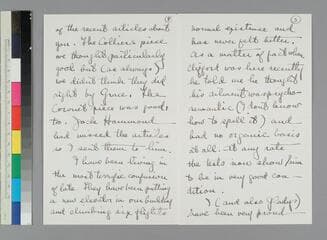 4
of the recent articles about
you. The Colliers piece
we thought particularly
good but (as always)
we didn't think they did
right by Grace. The
Coronet piece was good,
to. Jack Hammond
had missed the articles
so I sent them to him.
I have been living in
the most terrific confusion
of late. They have been putting
a new elevator in our building
and climbing six flights
5
normal existence and
has never felt better.
As a matter of fact when
Clifford was here recently
he told me he thought
his ailment was psycho-
somantic (I don't know
how to spell it) and
had no organic basis
at all. At any rate
the tests now show him
to be in very good con-
dition.
I (and also Gladys)
have been very proud